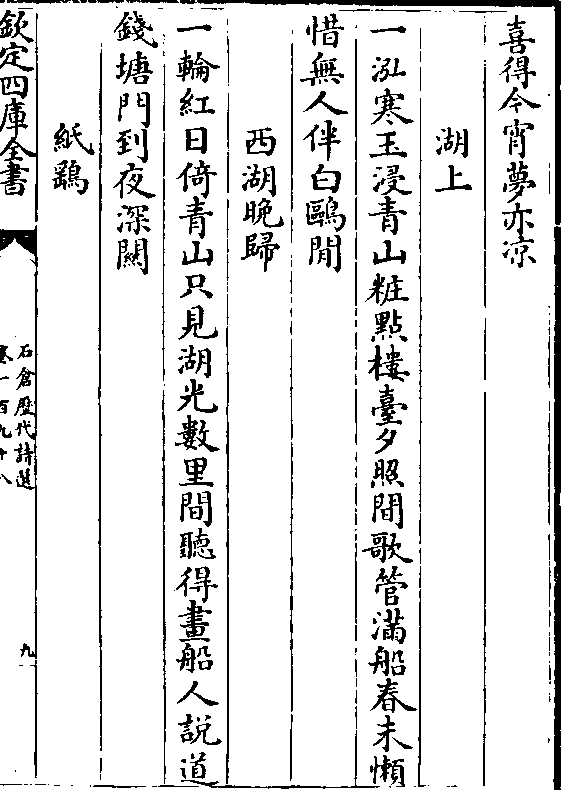 喜得今宵夢亦凉
湖上
一泓寒玉浸青山粧點樓臺夕照間歌管滿船春未懶
惜無人伴白鷗閒
西湖晚歸
一輪紅日倚青山只見湖光數里間聽得畫船人説道
錢塘門到夜深關
紙鷂
欽定四庫全書
石倉歴代詩選
卷一百九十八
九